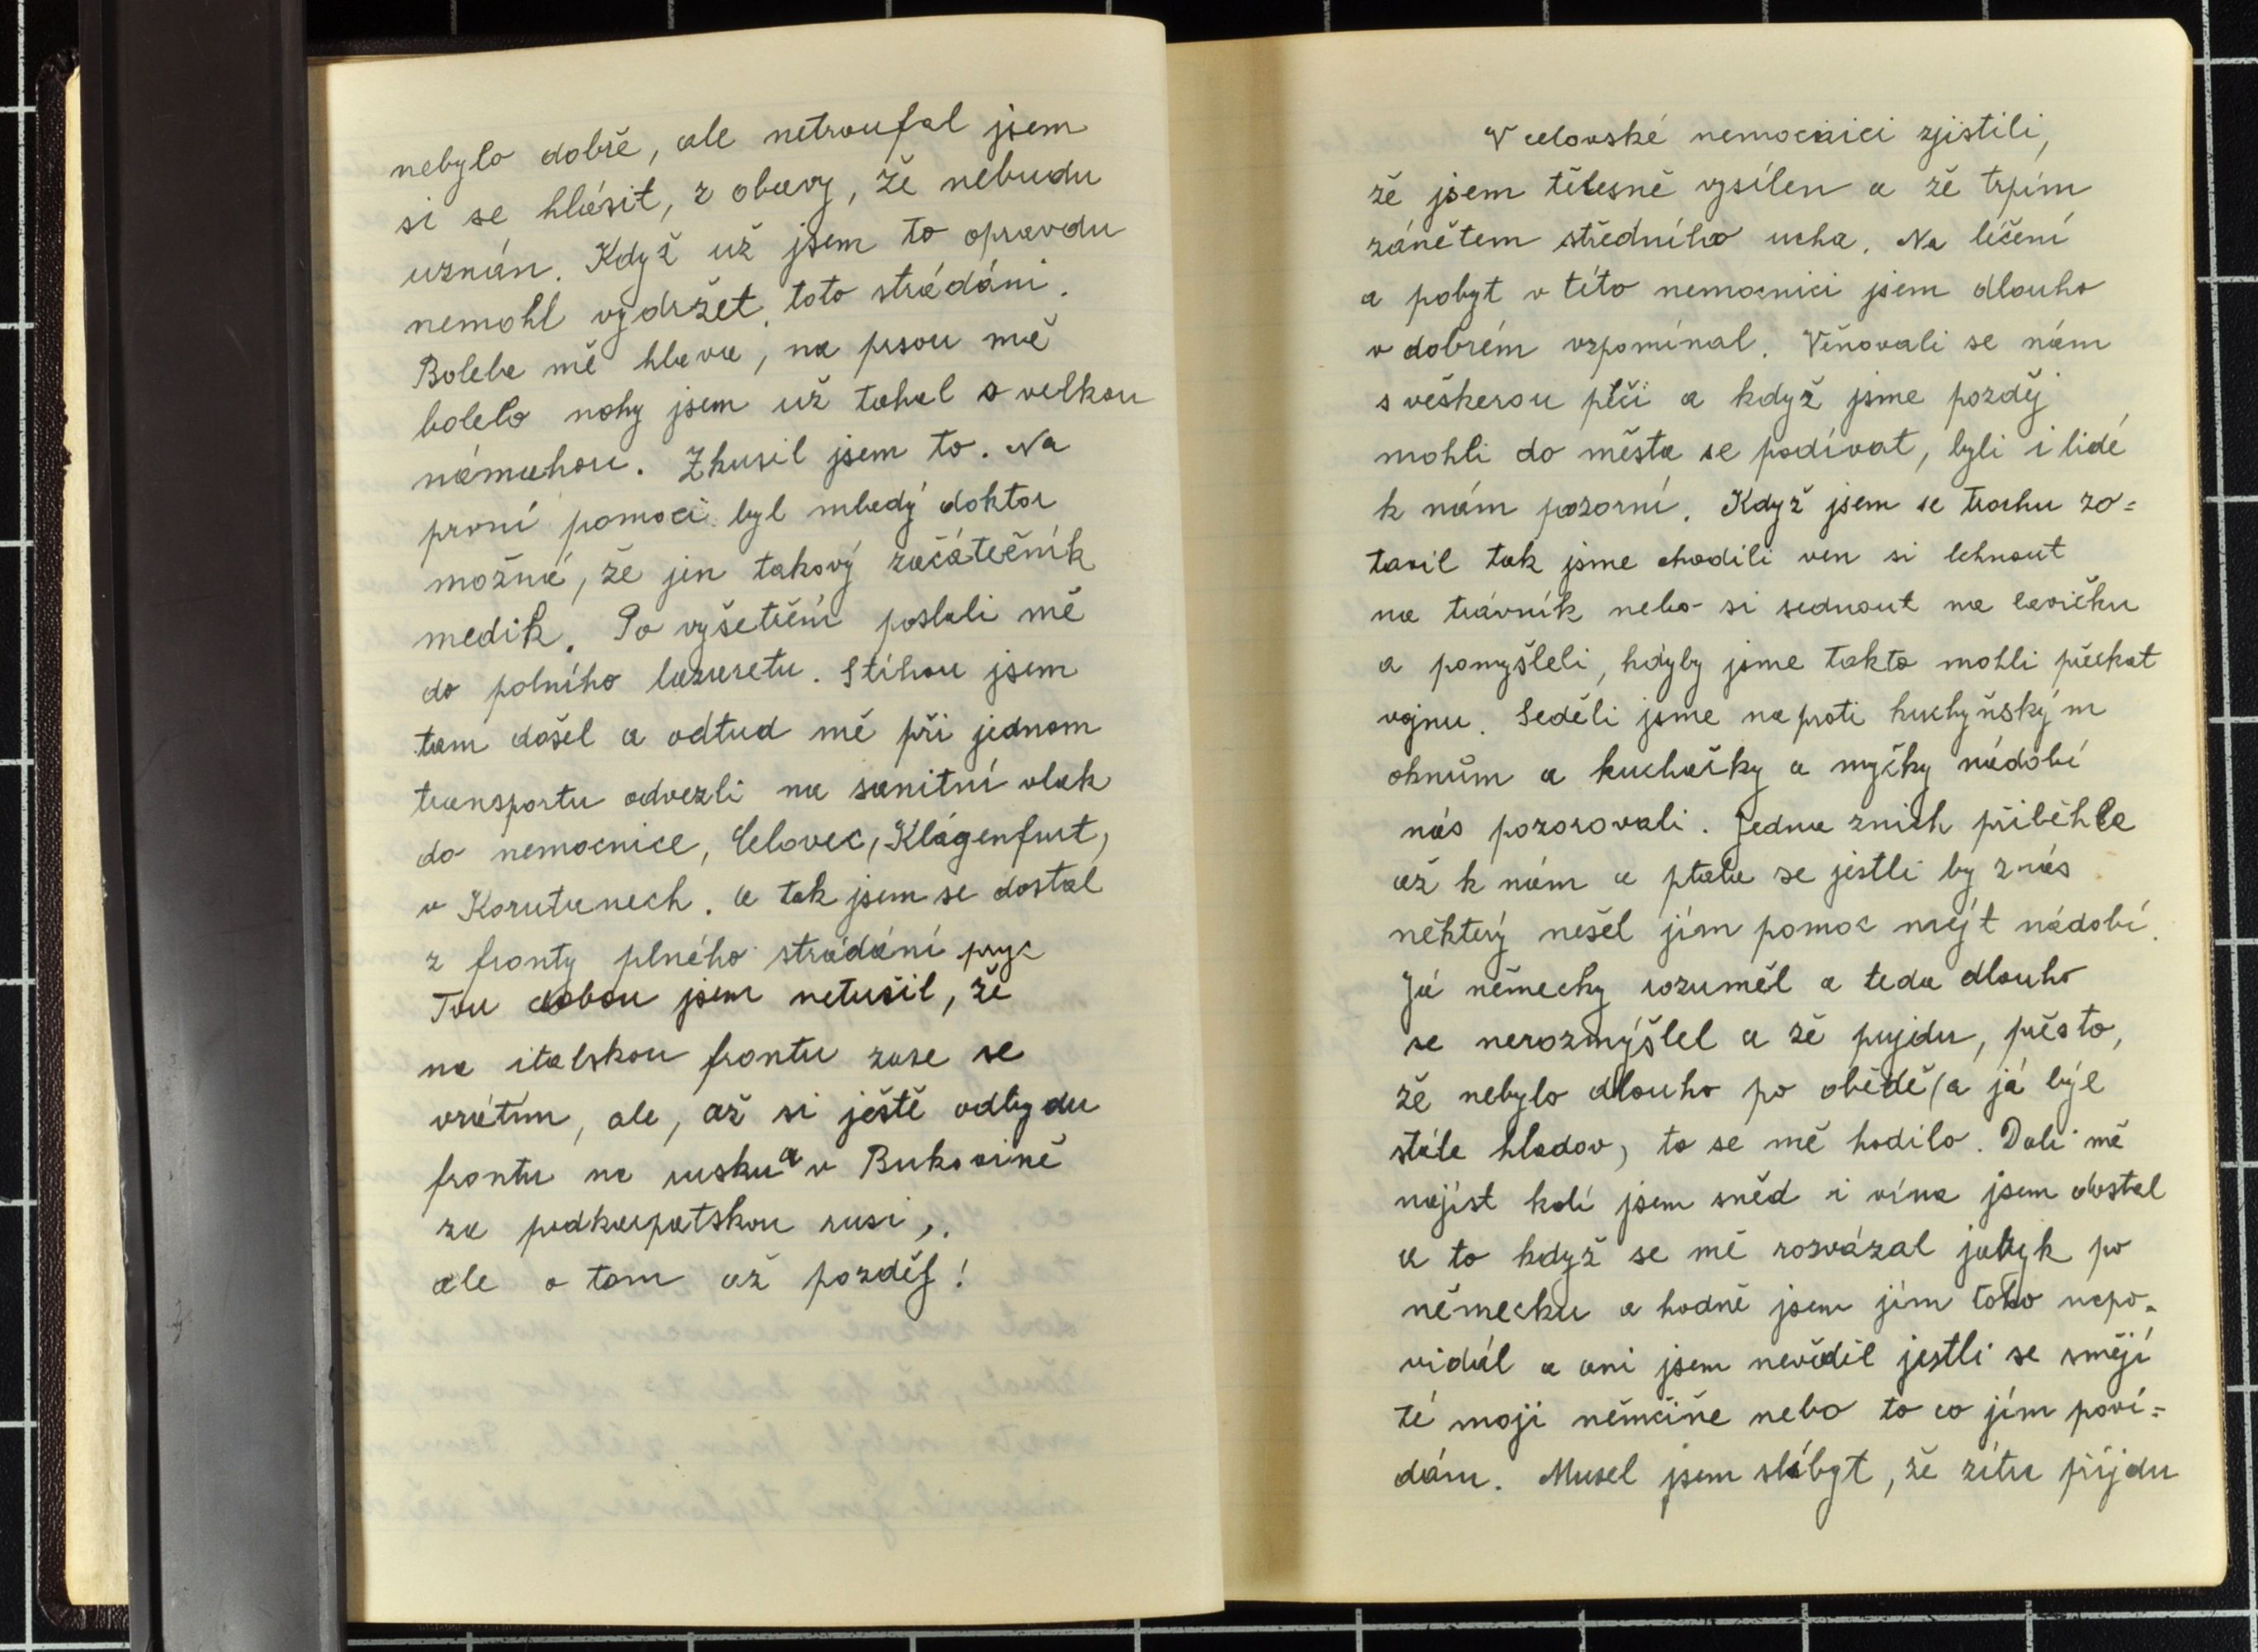 nebylo dobře, ale netroufal jsem
si se hlásit, z obavy, že nebudu
uznán. Když už jsem to opravdu
nemohl vydržet, toto strádáni.
Bolela mě hlava, na prsou mě
bolelo nohy jsem už tahal s velkou
námahou. Zkusil jsem to. Na
první pomoci byl mladý doktor
možná, že jen takový začátečník
medik. Po vyšetření poslali mě
do polního lazaretu. Stíhou jsem
tam došel a odtud mě při jednom
transportu odvezli na sanitní vlak
do nemocnice, Celovec, Klágenfurt,
v Korutanech. a tak jsem se dostal
z fronty plného strádání pryc
Tou dobou jsem netušil, že
na italskou frontu zase se
vrátím, ale, až si ještě odbydu
frontu na rusku a v Bukovině
za podkarpatskou rusi,.
ale o tom až pozděj!
V celovské nemocnici zjistili,
že jsem tělesně vysílen a že trpím
zánětem středního ucha. Na léčení
a pobyt v této nemocnici jsem dlouho
v dobrém vzpomínal. Věňovali se nám
s veškerou péči a když jsme pozděj
mohli do města se podívat, byli i lidé
k nám pozorní. Když jsem se trochu zo=
tavil tak jsme chodili ven si lehnout
na trávník nebo si sednout na lavičku
a pomyšleli, kdyby jsme takto mohli přečkat
vojnu. Seděli jsme naproti kuchyňským
oknům a kuchařky a myčky nádobí
nás pozorovali. Jedna znich přiběhla
až k nám a ptala se jestli by znás
některý nešel jím pomoc mejt nádobí.
Já německy rozuměl a teda dlouho
se nerozmýšlel a že pujdu, přesto,
že nebylo dlouho po obědě (a já býl
stále hladov) to se mě hodilo. Dali mě
najíst kolí jsem sněd i vína jsem dostal
a to když se mě rozvázal jazyk po
německu a hodně jsem jím toho napo=
vidál a ani jsem nevěděl jestli se smějí
té moji němčiňe nebo to co jím poví=
dám. Musel jsem slíbyt, že zítra příjdu